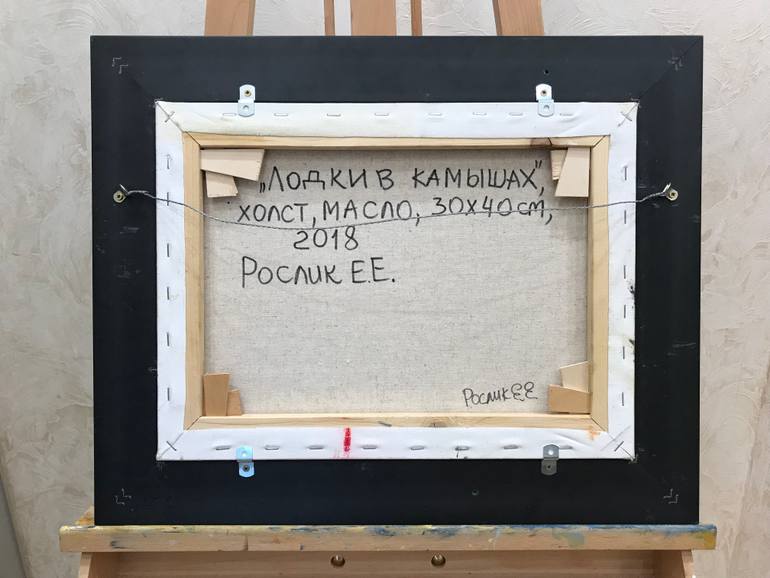 „ЛОДКИ В КАМЫШАХ",
ХОЛСТ, МАСЛО, 30х40см,
2018
РОСЛИК Е.Е.
Рослик ЕЕ